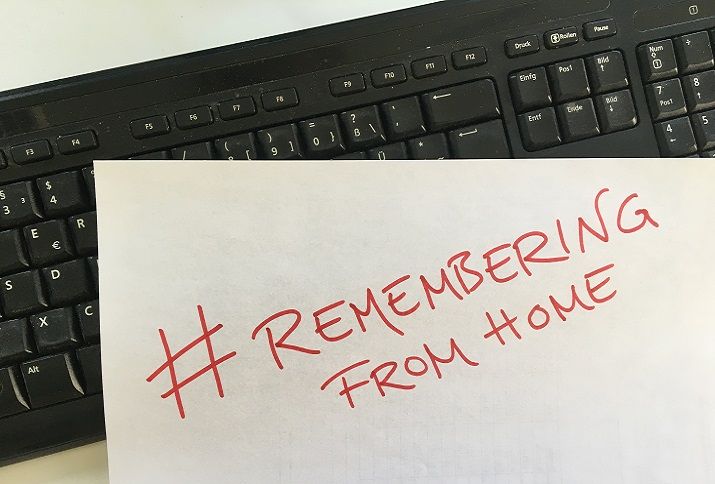 F3 F4 F5 F6 F7 F8 F9 F10 F11 F12 Druck Rollen Pause
Einfg Pos1 Bild ↑ Num ÷
Entf Ende Bild ↓ 7 Pos1 8
4 5
§ 3 ³ $ 4 ) 9 ] = 0 } ? ß \ ` ´ ←
E € R
S D
X C
Alt
# REMEMBERING
FROM HOME